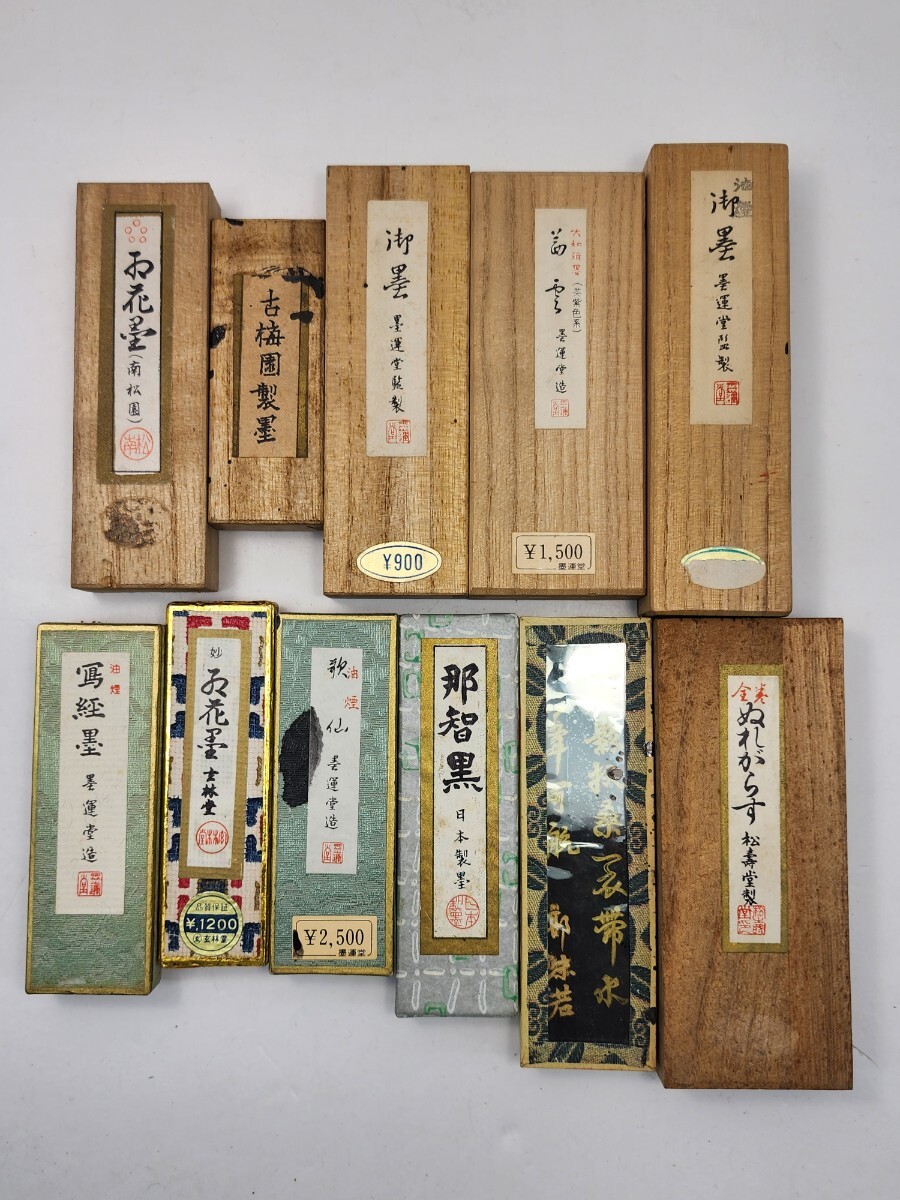 紅花墨
(南松園)
南松
古梅園製墨
御墨
墨運堂監製
¥900
茜雲
(茶紫色系)
墨運堂造
¥1,500
墨運堂
油煙
御墨
墨運堂監製
油煙
寫經墨
墨運堂造
妙
紅花墨
玄林堂
品質保証
¥1200
玄林堂
油煙
歌仙
墨運堂造
¥2,500
墨運堂
那智黒
日本製墨
一衣帶水
郭沫若
ぬれがらす
松壽堂製